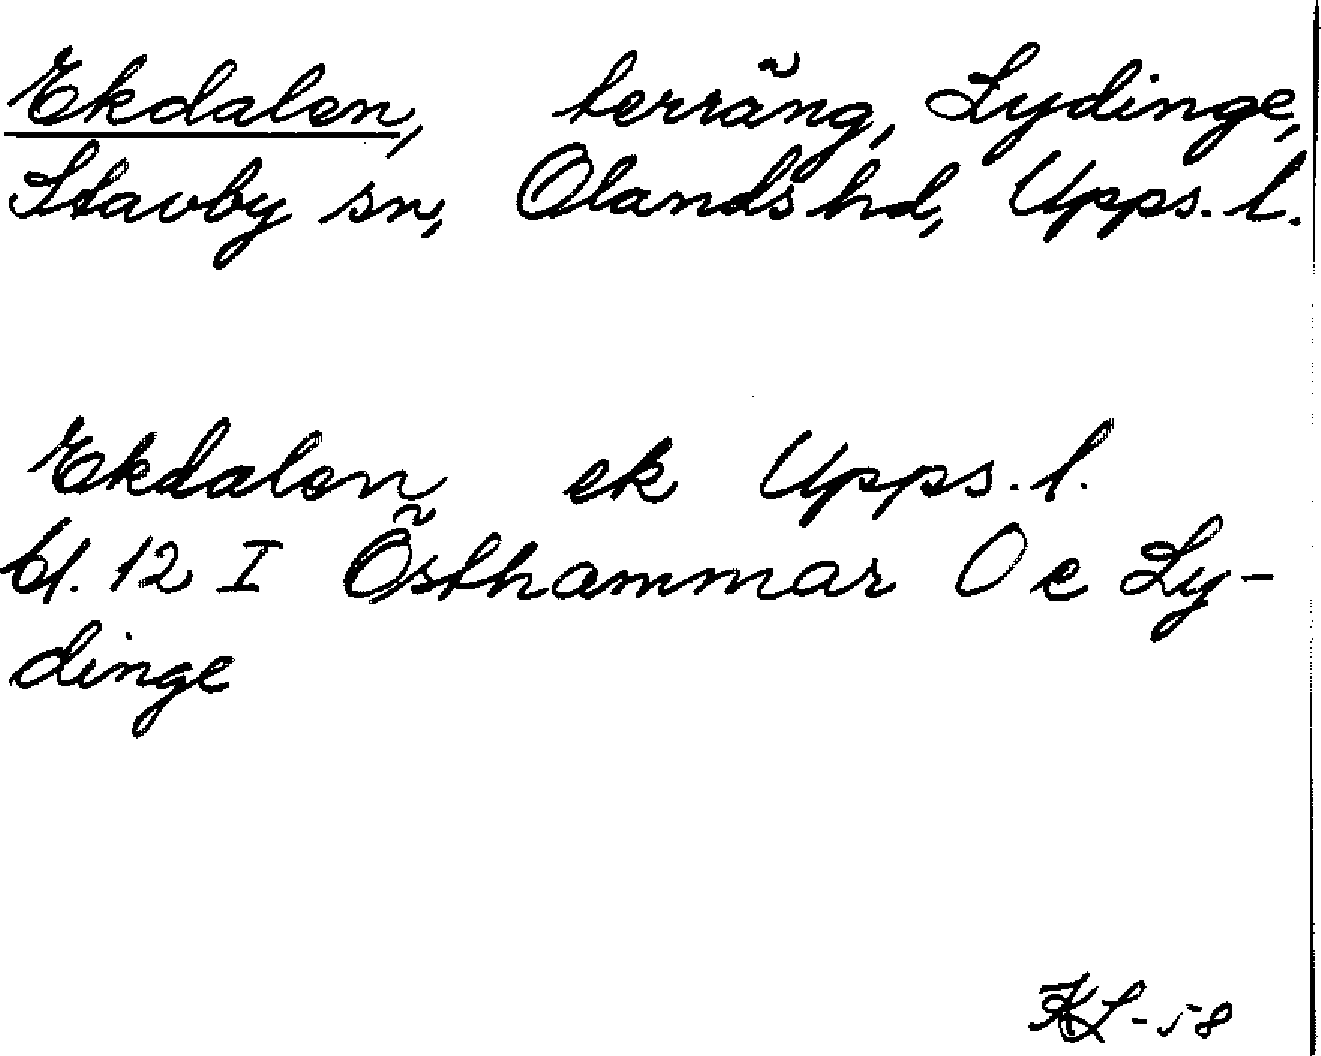 Ekdalen, terräng, Lydinge,
Stavby sn, Olands hd, Upps. l.
Ekdalen ek Upps. l.
bl. 12 I Östhammar O e Ly-
dinge
KL-58